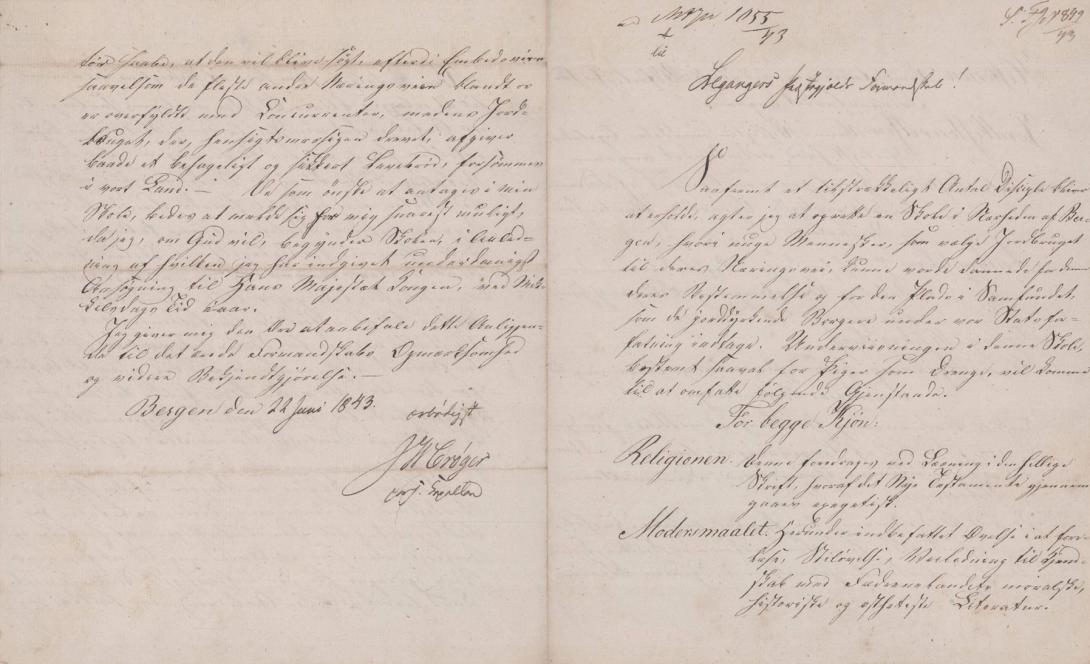 tør haabe, at den vil blive søgt, efterdi Embedsveien
saavelsom de fleste andre Næringsveie blandt os
er overfyldt med Concurrenter, medens Jord-
bruget, der, hensigtsmæssigen drevet, afgiver
baade et behageligt og sikkert Levebrød, forsømmes
i vort Land. — De som ønske at antages i min
Skole, bedes at melde sig for mig snarest muligt,
da jeg, om Gud vil, begynder Skolen, i Anled-
ning af hvilken jeg har indgivet underdanigst
Ansøgning til Hans Majestæt Kongen, ved Mik-
kelsdags Tid i aar.
Jeg giver mig den Ære at anbefale dette Anliggen-
de til det ærede Formandskabs Opmærksomhed
og videre Bekjendtgjørelse. —
Bergen den 22 Juni 1843.
ærbødigst
J H Crøger
1055
43
til
43
Leganger Formandskab!
Saafremt et tilstrækkeligt Antal Disciple bliver
at erholde, agter jeg at oprette en Skole i Nærheden af Ber-
gen, hvori unge Mennesker, som vælge Jordbruget
til deres Næringsvei, kunne vorde dannede for denne
deres Bestemmelse og for den Plads i Samfundet,
som de jorddyrkende Borgere under vor Statsfor-
fatning indtage. Underviisningen i denne Skole,
bestemt saavel for Piger som Drenge, vil komme
til at omfatte følgende Gjenstande.
For begge Kjøn:
Religionen. Denne foredrages ved Læsning i den hellige
Skrift, hvoraf det Nye Testamente gjennem-
gaaes exegetisk.
Modersmaalet. Herunder indbefattet Øvelse i at fore-
læse, Stiløvelse, Veiledning til Kjend-
skab med Fædrenelandets moralske,
historiske og æsthetiske Literatur.